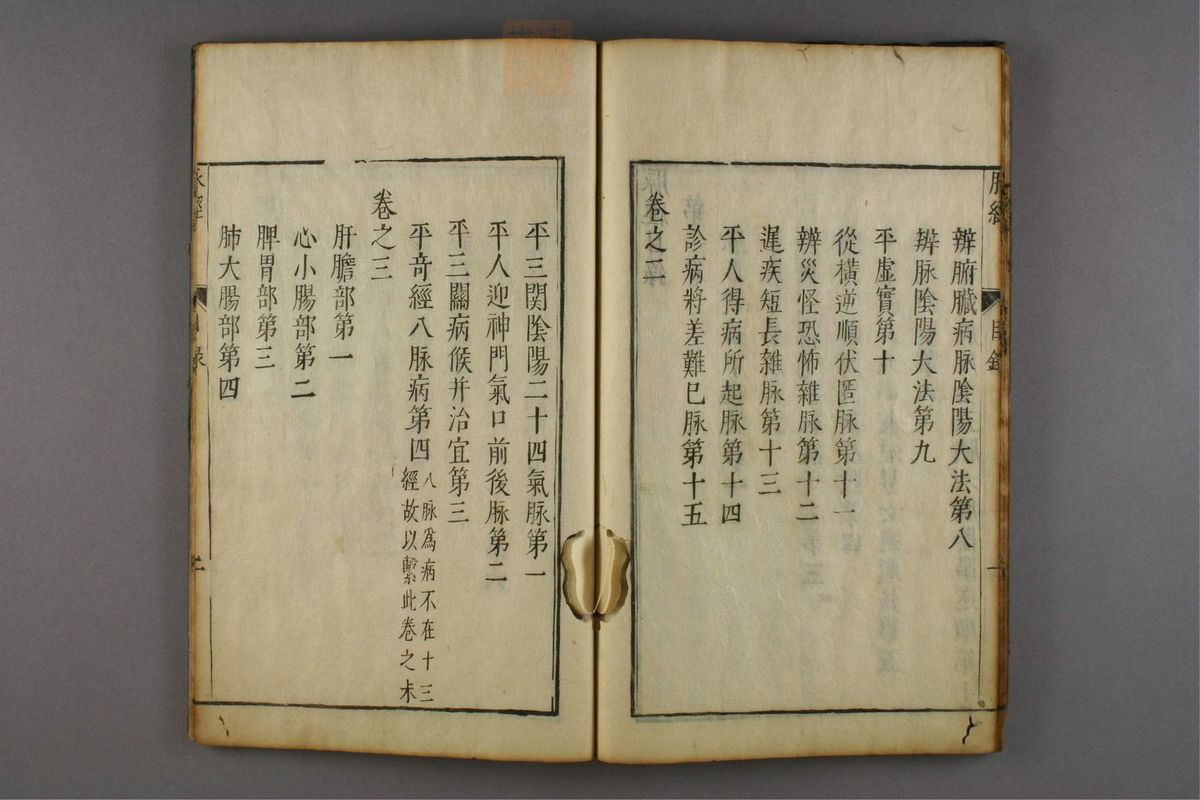 脉經
目錄
辨腑臟病脉陰陽大法第八
辨脉陰陽大法第九
平虛實第十
從橫逆順伏匿脉第十一
辨災怪恐怖雜脉第十二
遲疾短長雜脉第十三
平人得病所起脉第十四
診病將差難已脉第十五
卷之二
平三関陰陽二十四氣脉第一
平人迎神門氣口前後脉第二
平三關病候并治宜第三
平奇經八脉病第四
八脉爲病不在十三
經故以繫此卷之末
卷之三
肝膽部第一
心小腸部第二
脾胃部第三
肺大腸部第四